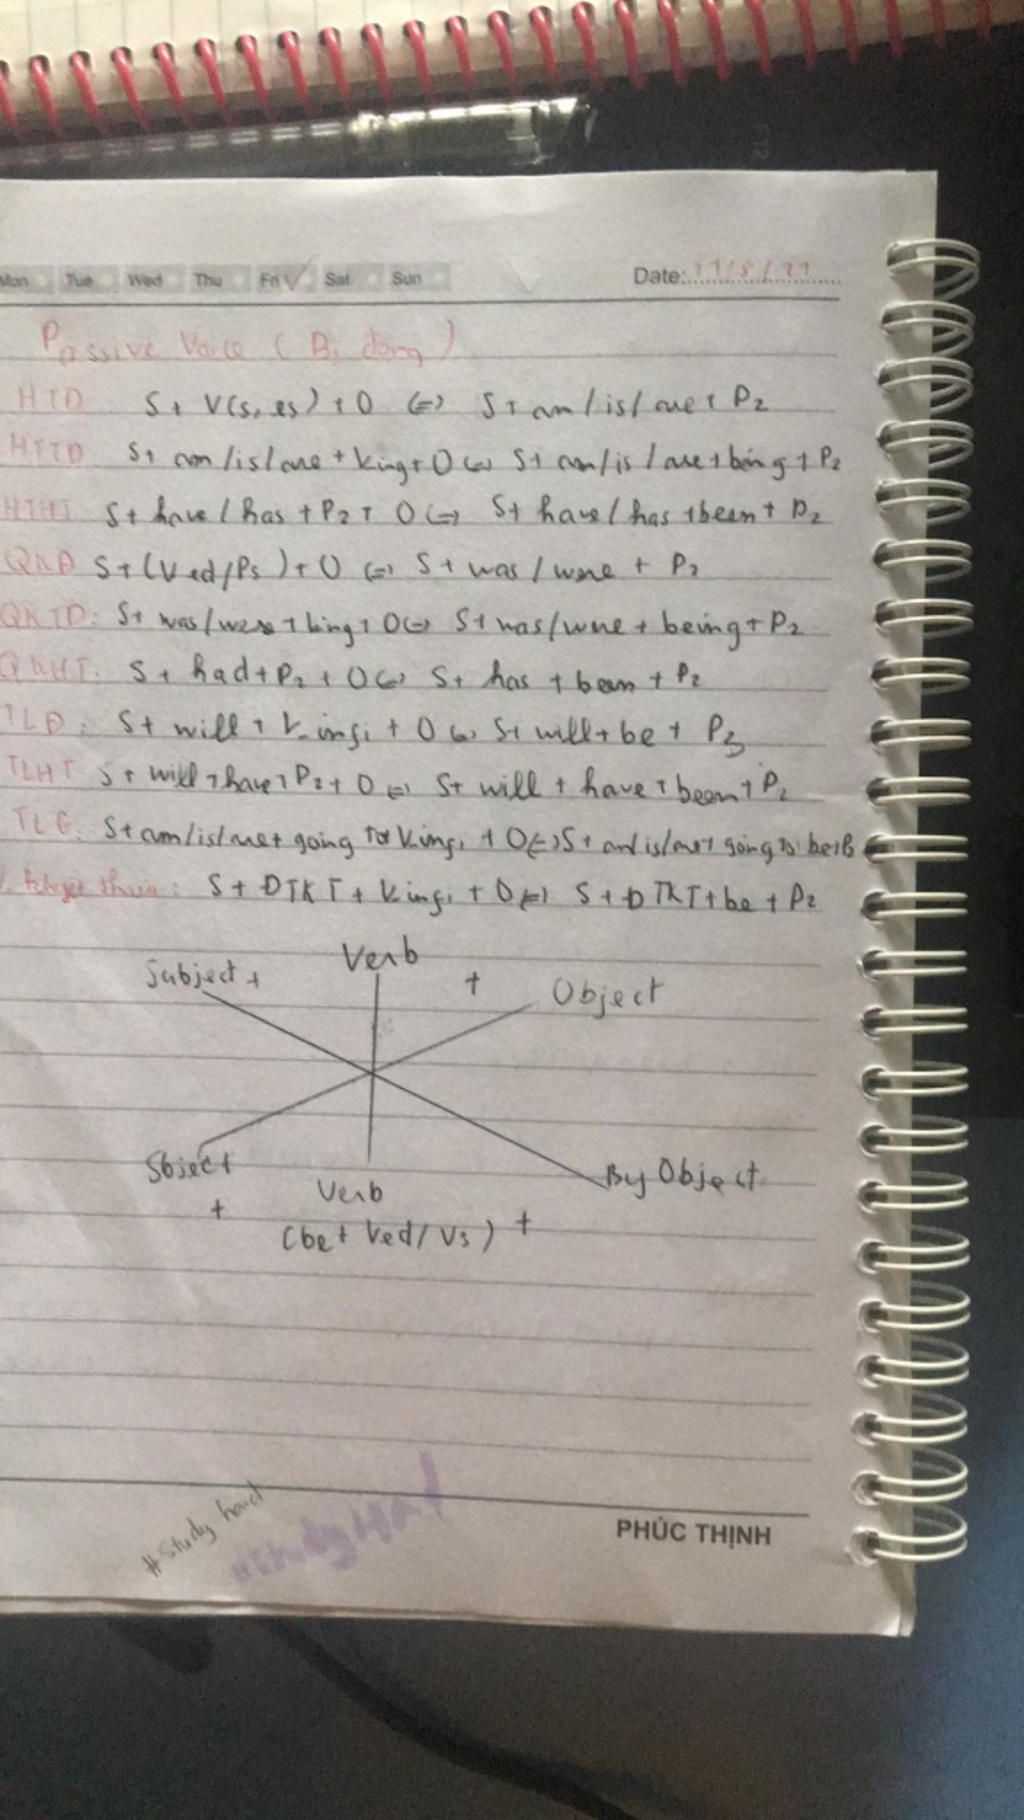 Mon Tue Wed Thu Fri Sat Sun Date:
Passive Voice (Bị động)
HTD S+ V(s, es) + O <=> S + am/is/are + P2
HTTD S+ am/is/are + Ving + O <=> S+ am/is/are + being + P2
HTHT S+ have/has + P2 + O <=> S+ have/has + been + P2
QKD S+(Ved/Ps)+O <=> S + was/were + P2
QKTD: S+ was/were + Ving + O <=> S+ was/were + being + P2
QKHT: S+ had + P2 + O <=> S+ has + been + P2
TLD: S+ will + V + O <=> S+ will + be + P3
TLHT S+ will + have + P2 + O <=> S+ will + have + been + P2
TLG: S+ am/is/are + going to + V + O <=> S+ am/is/are + going to be +
S + DTKT + V + O <=> S + DTKT + be + P2
Subject + Verb + Object
Sbject + Verb By Object
(be + Ved/V3) +
#Study hard
#StudyHard
PHÚC THỊNH